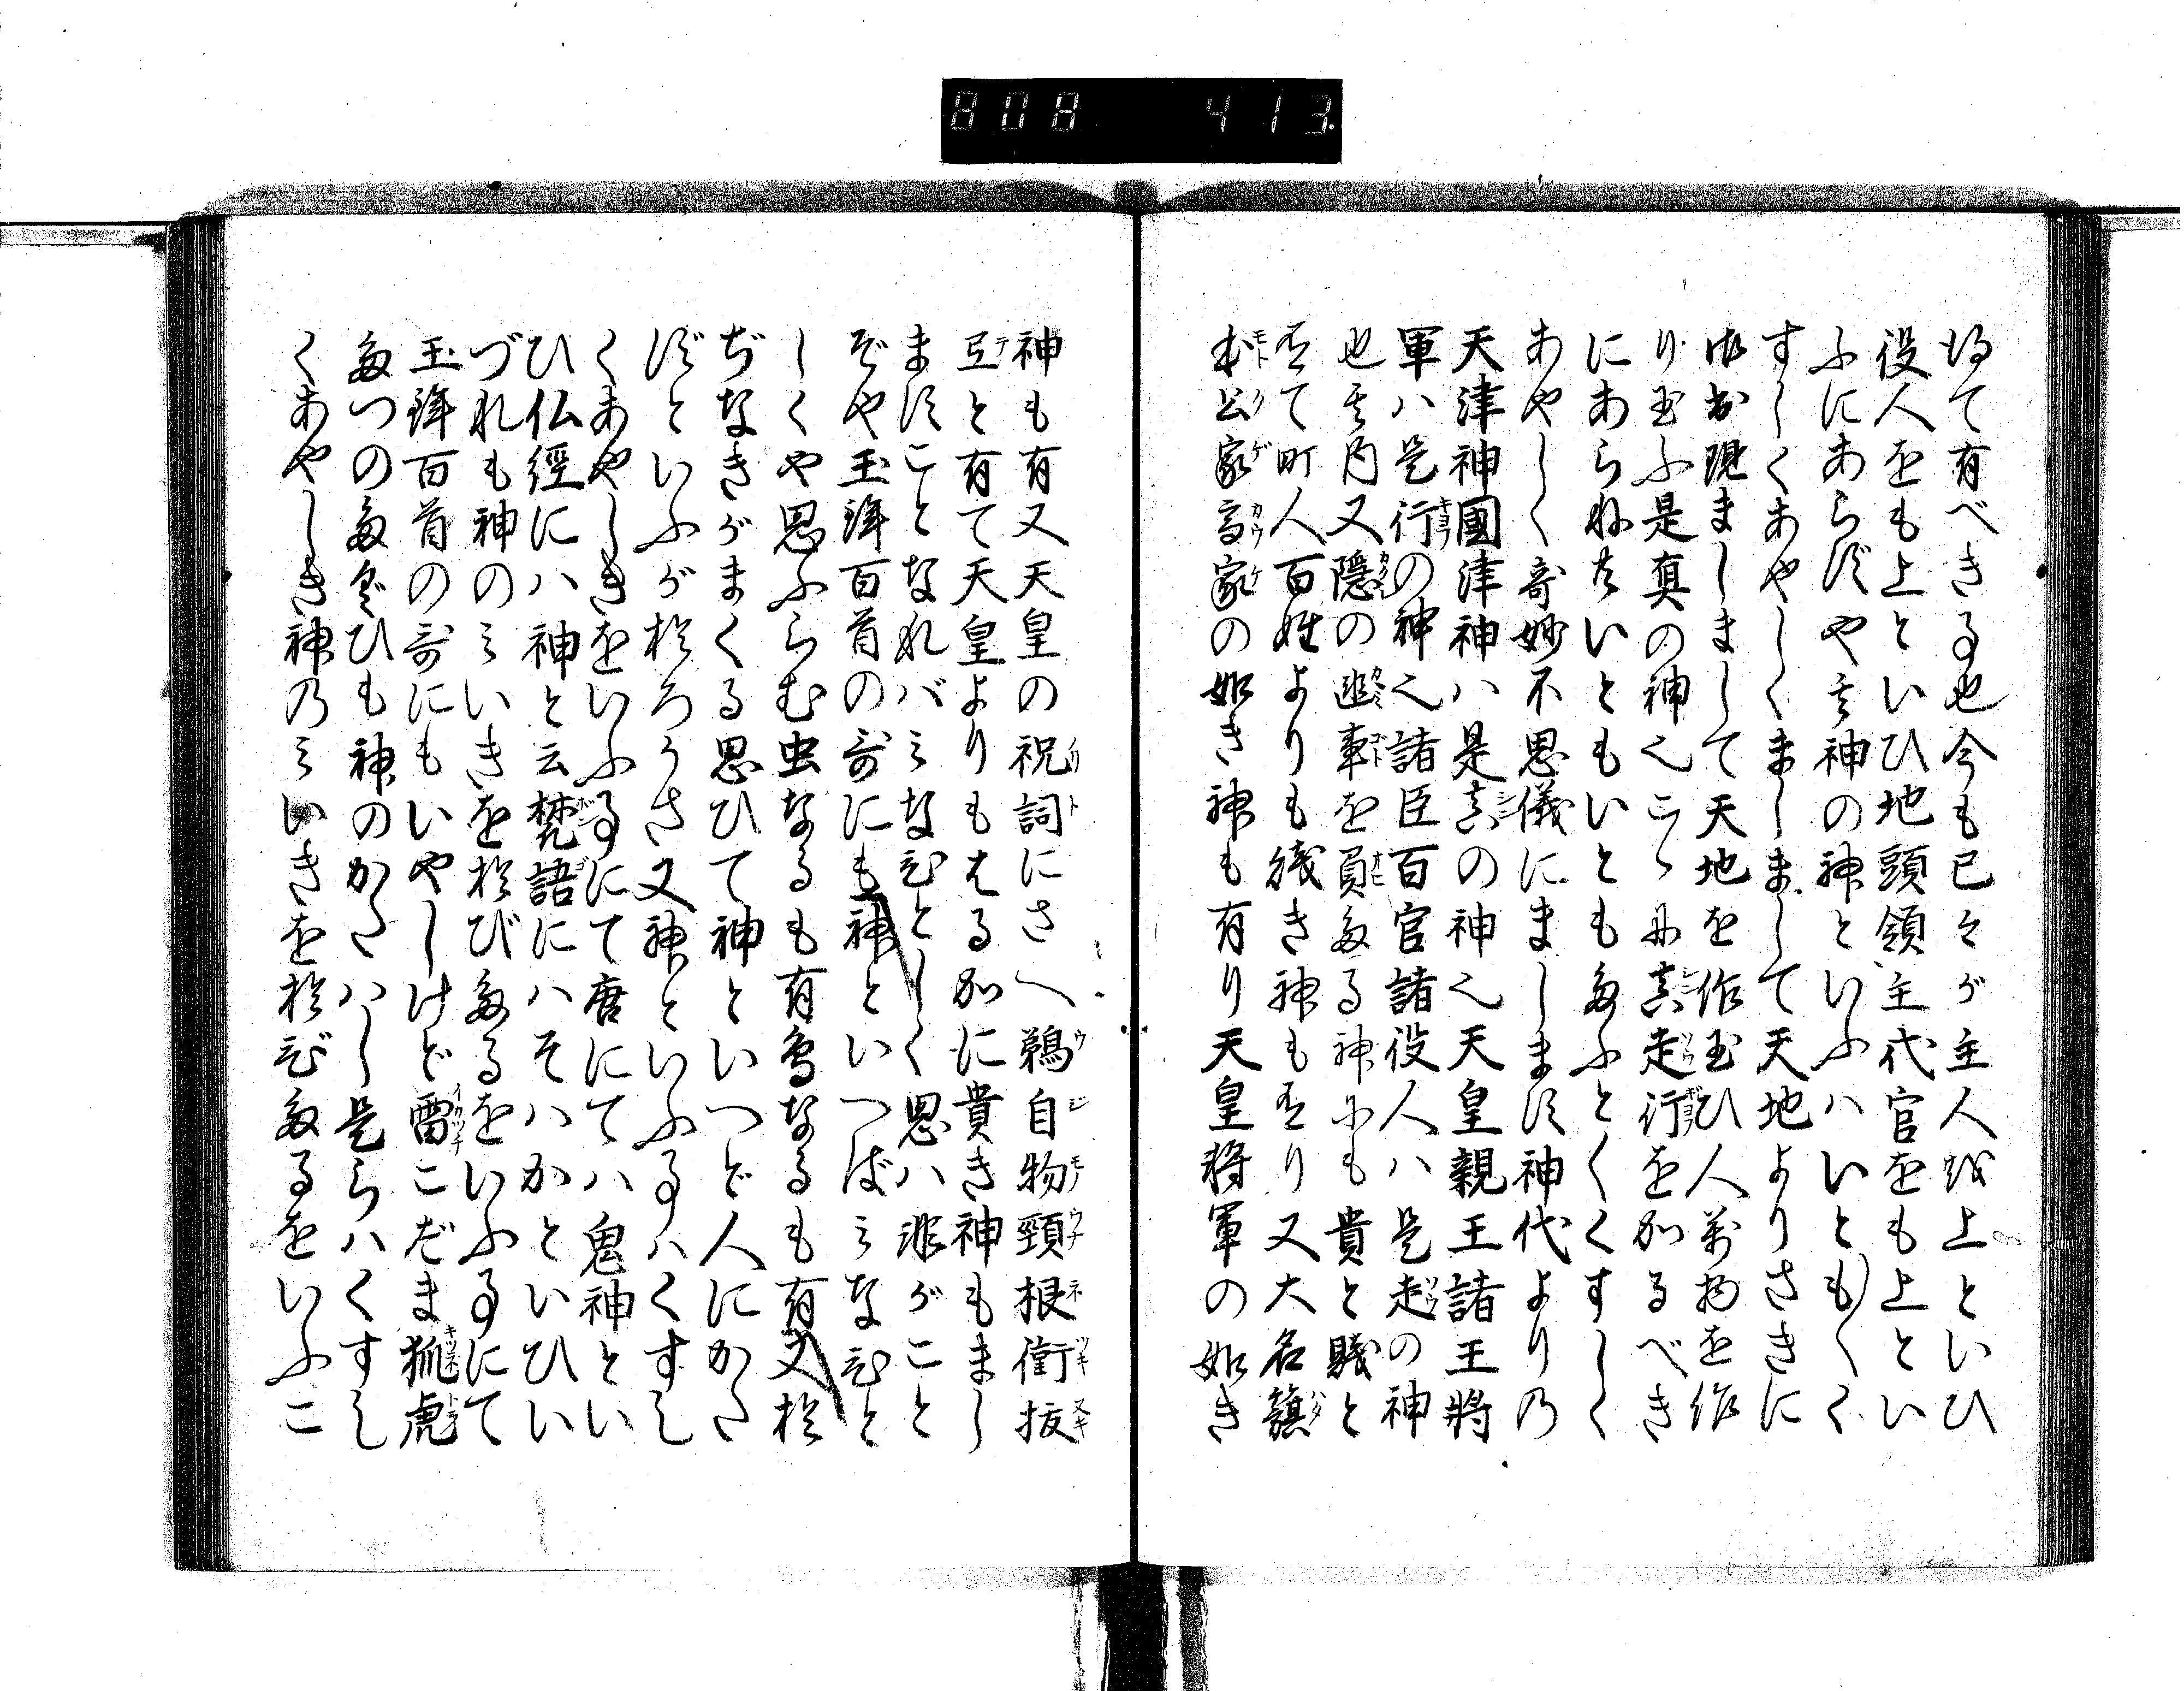 808 413.
得て有べき事也今も已々が主人を上といひ
役人をも上といひ地頭領主代官をも上とい
ふにあらずや其神の神といふハいともくく
すしくあやしくましまして天地よりさきに
御出現ましまして天地を作玉ひ人万物を作
り玉ふ是真の神也こゝに真走行をかるべき
にあらねどいともいともたふとくくすしく
あやしく奇妙不思儀にまします神代よりの
天津神國津神ハ是真の神也天皇親王諸王將
軍ハ是行の神也諸臣百官諸役人ハ是走の神
也其内又隠の幽事を負たる神にも貴と賎と
有て町人百姓よりも賎き神も有り又大名籏
本公家高家の如き神も有り天皇将軍の如き
神も有又天皇の祝詞にさへ鵜自物頸根衝抜
弖と有て天皇よりもはるかに貴き神もまし
ますことなれバミなひとしく思ハ非がこと
ぞや玉鉾百首の哥にも神といつばミなひと
しくや思ふらむ虫なるも有鳥なるも有又於
ぢなきがまくる思ひて神といつど人にかた
ずといふが於ろうさ又神といふ事ハくすし
くあやしきをいふ事にて唐にてハ鬼神とい
ひ仏經にハ神と云梵語にハそハかといひい
づれも神のミいきを於び給るをいふ事にて
玉鉾百首の哥にもいやしけど雷こだま狐虎
たつのたぐひも神のかたハし是らハくすし
くあやしき神のミいきを於び給るをいふこ